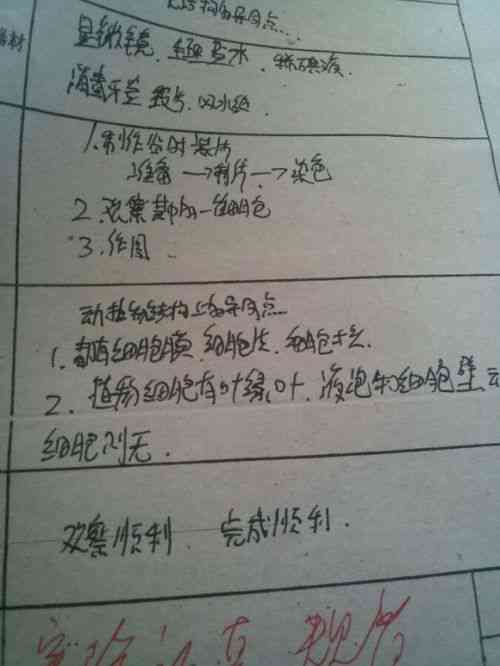 结构的异同点...
器材
显微镜、生理盐水、稀碘液、
消毒牙签、载片、吸水纸.
1.制作临时装片
准备→制片→染色
2.观察其中的一细胞
3.作图
动植物结构上的异同点
1.都有细胞膜、细胞质、细胞核.
2.植物细胞有叶绿叶、液泡和细胞壁
细胞则无.
观察顺利、完成顺利.